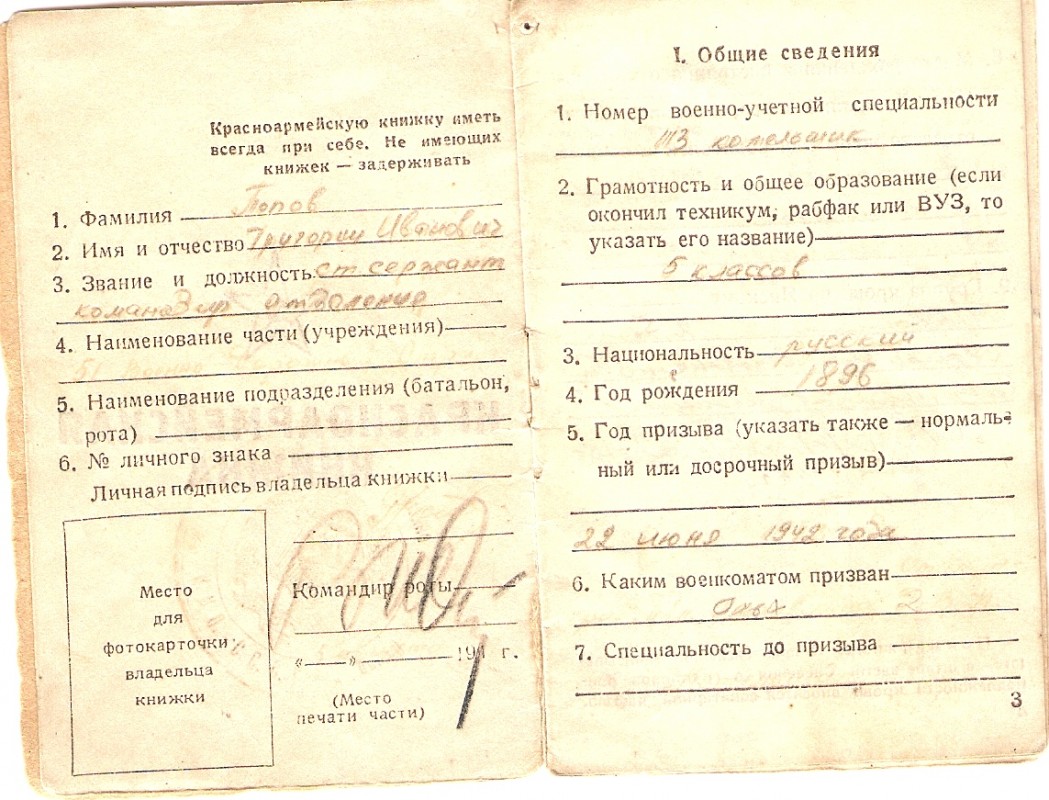 Красноармейскую книжку иметь
всегда при себе. Не имеющих
книжек — задерживать
1. Фамилия Попов
2. Имя и отчество Григории Иванович
3. Звание и должность ст сержант
командир отделения
4. Наименование части (учреждения)
51
5. Наименование подразделения (батальон,
рота)
6. № личного знака
Личная подпись владельца книжки
Место
для
фотокарточки
владельца
книжки
Командир роты
« » 194 г.
(Место
печати части)
I. Общие сведения
1. Номер военно-учетной специальности
113 котельщик
2. Грамотность и общее образование (если
окончил техникум, рабфак или ВУЗ, то
указать его название)
5 классов
3. Национальность русский
4. Год рождения 1896
5. Год призыва (указать также — нормаль-
ный или досрочный призыв)
22 июня 1942 года
6. Каким военкоматом призван
7. Специальность до призыва
3